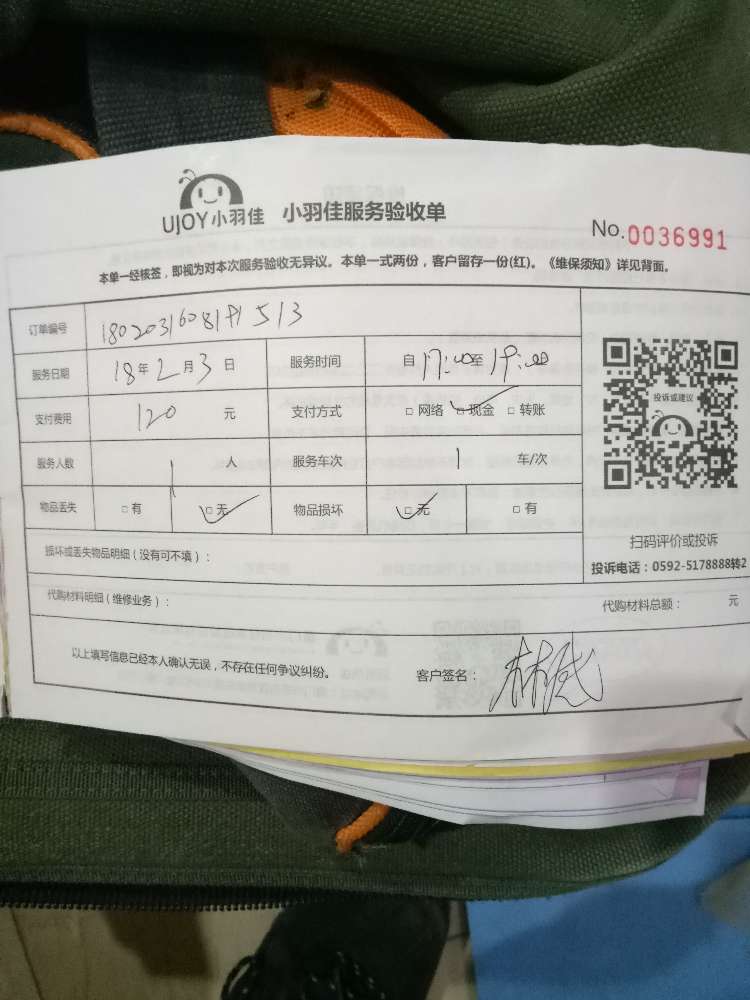 UJOY小羽佳 小羽佳服务验收单
No.0036991
本单一经核签，即视为对本次服务验收无异议。本单一式两份，客户留存一份(红)。《维保须知》详见背面。
订单编号
服务日期 18年2月3日 服务时间 自17:00至19:00
支付费用 120元 支付方式 □网络 □现金 □转账
投诉或建议
服务人数 1人 服务车次 1车/次
物品丢失 □有 □无 物品损坏 □无 □有
扫码评价或投诉
损坏或丢失物品明细（没有可不填）：
投诉电话：0592-5178888转2
代购材料明细（维修业务）： 代购材料总额： 元
以上填写信息已经本人确认无误，不存在任何争议纠纷。 客户签名：